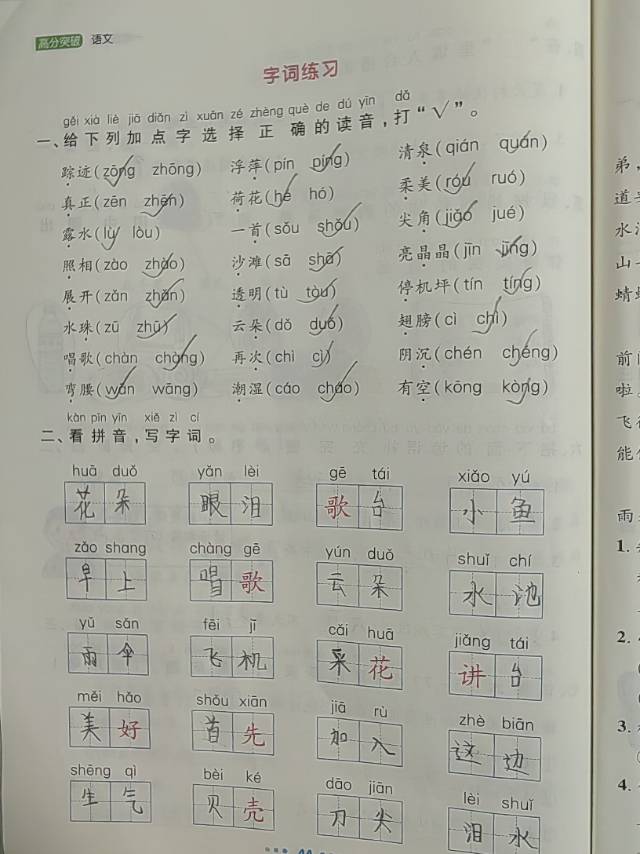 高分突破 语文
字词练习
gěi xià liè jiā diǎn zì xuǎn zé zhèng què de dú yīn dǎ
一、给下列加点字选择正确的读音,打“√”。
踪迹(zōng zhōng) 浮萍(pín píng) 清泉(qián quán)
真正(zēn zhēn) 荷花(hé hó) 柔美(róu ruó)
露水(lù lòu) 一首(sǒu shǒu) 尖角(jiǎo jué)
照相(zào zhào) 沙滩(sā shā) 亮晶晶(jīn jīng)
展开(zǎn zhǎn) 透明(tù tòu) 停机坪(tín tíng)
水珠(zū zhū) 云朵(dǒ duǒ) 翅膀(cì chì)
唱歌(chàn chàng) 再次(chì cì) 阴沉(chén chéng)
弯腰(wān wāng) 潮湿(cáo cháo) 有空(kōng kòng)
kàn pīn yīn xiě zì cí
二、看拼音,写字词。
huā duǒ yǎn lèi gē tái xiǎo yú
花朵 眼泪 歌台 小鱼
zǎo shang chàng gē yún duǒ shuǐ chí
早上 唱歌 云朵 水池
yǔ sǎn fēi jī cǎi huā jiǎng tái
雨伞 飞机 采花 讲台
měi hǎo shǒu xiān jiā rù zhè biān
美好 首先 加入 这边
shēng qì bèi ké dāo jiān lèi shuǐ
生气 贝壳 刀尖 泪水
弟,
道
水
山
蜻
前
啦
飞
能
雨
1.
2.
3.
4.